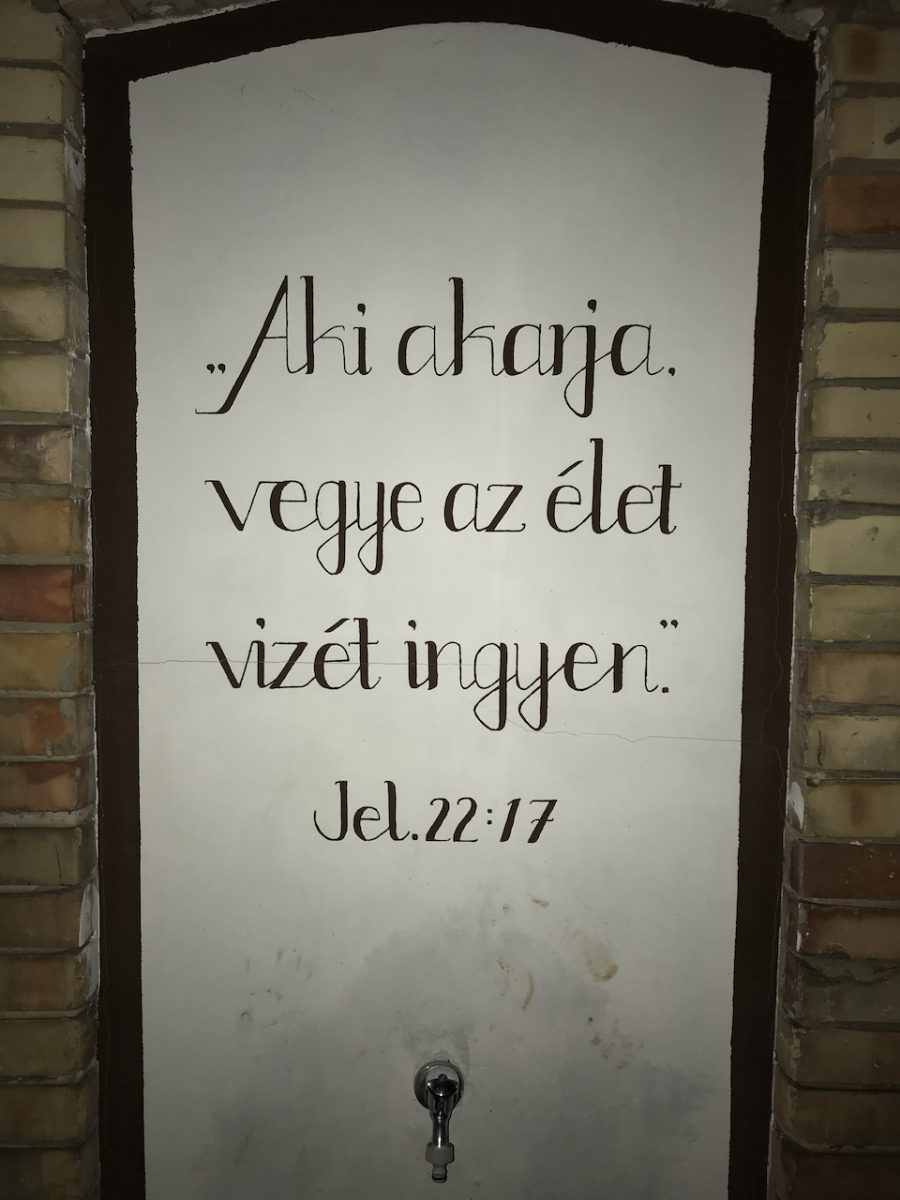 „Aki akarja,
vegye az élet
vizét ingyen.”
Jel. 22:17